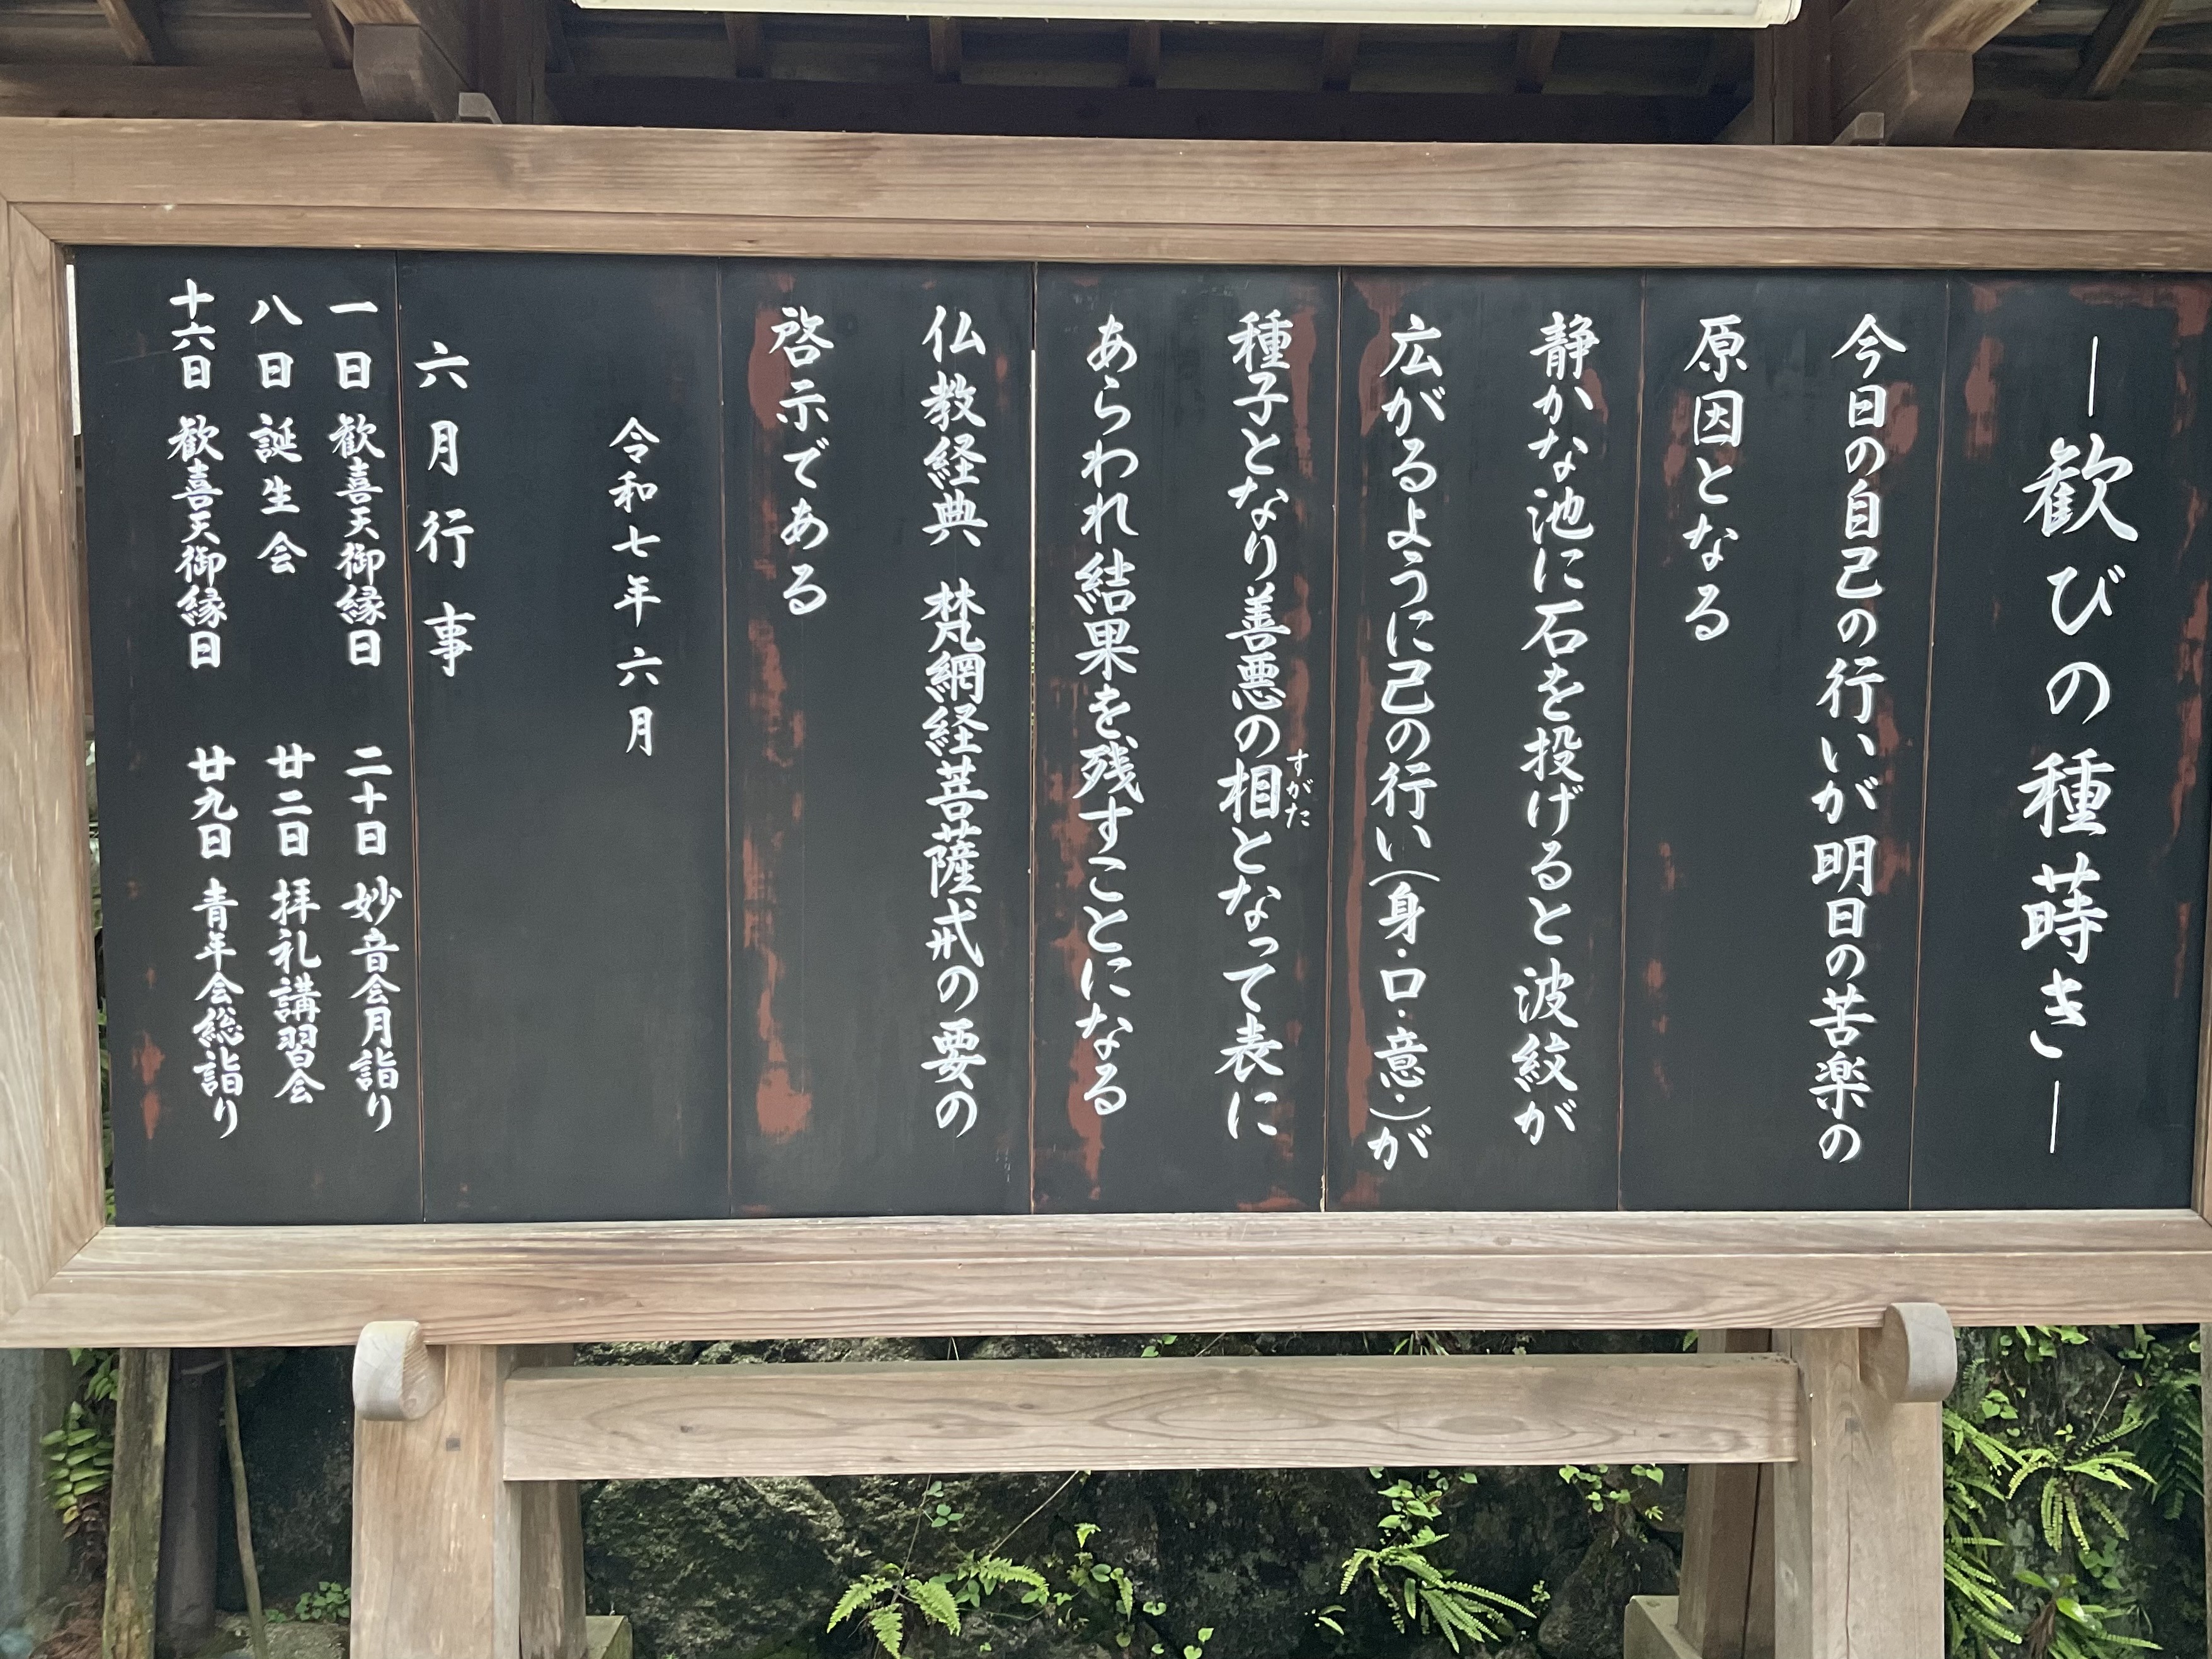 ―歓びの種蒔き―
今日の自己の行いが明日の苦楽の
原因となる
静かな池に石を投げると波紋が
広がるように己の行い(身・口・意・)が
種子となり善悪の相となって表に
すがた
あらわれ結果を残すことになる
仏教経典 梵網経菩薩戒の要の
啓示である
令和七年六月
六月行事
一日 歓喜天御縁日
八日 誕生会
十六日 歓喜天御縁日
二十日 妙音会月詣り
廿二日 拝礼講習会
廿九日 青年会総詣り